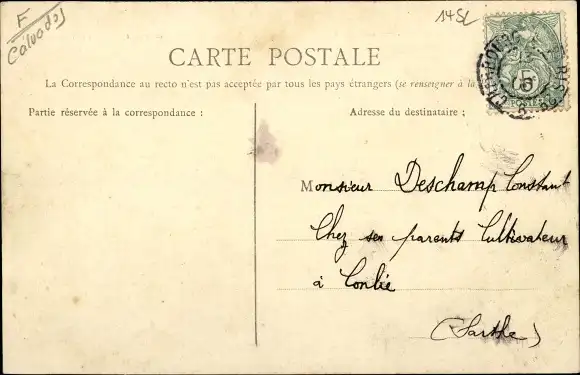 F
Calvados
14SL
CARTE POSTALE
La Correspondance au recto n'est pas acceptée par tous les pays étrangers (se renseigner à la
Partie réservée à la correspondance :
Adresse du destinataire ;
5
POSTES
Monsieur Deschamp Constant
Chez ses parents Cultivateur
à Conlie
(Sarthe)